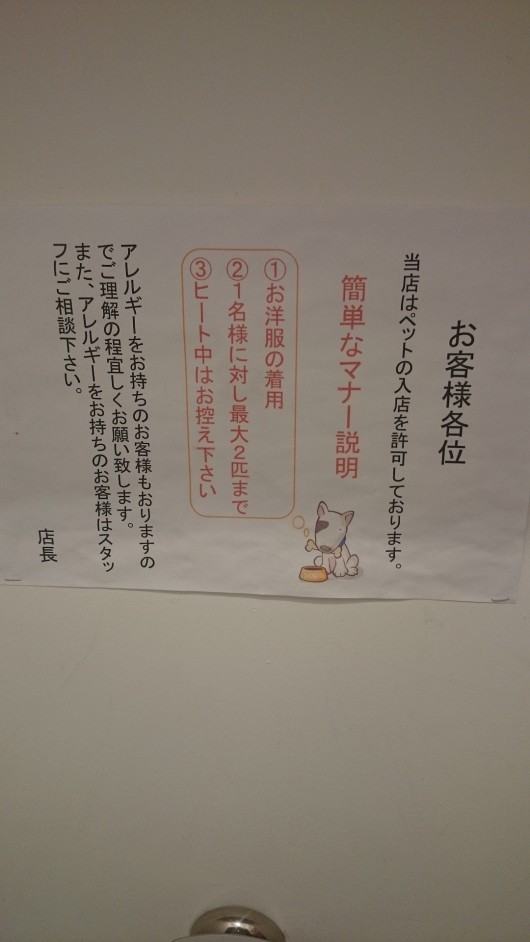 お客様各位
当店はペットの入店を許可しております。
簡単なマナー説明
①お洋服の着用
②1名様に対し最大2匹まで
③ヒート中はお控え下さい
アレルギーをお持ちのお客様もおりますの
でご理解の程宜しくお願い致します。
また、アレルギーをお持ちのお客様はスタッ
フにご相談下さい。
店長